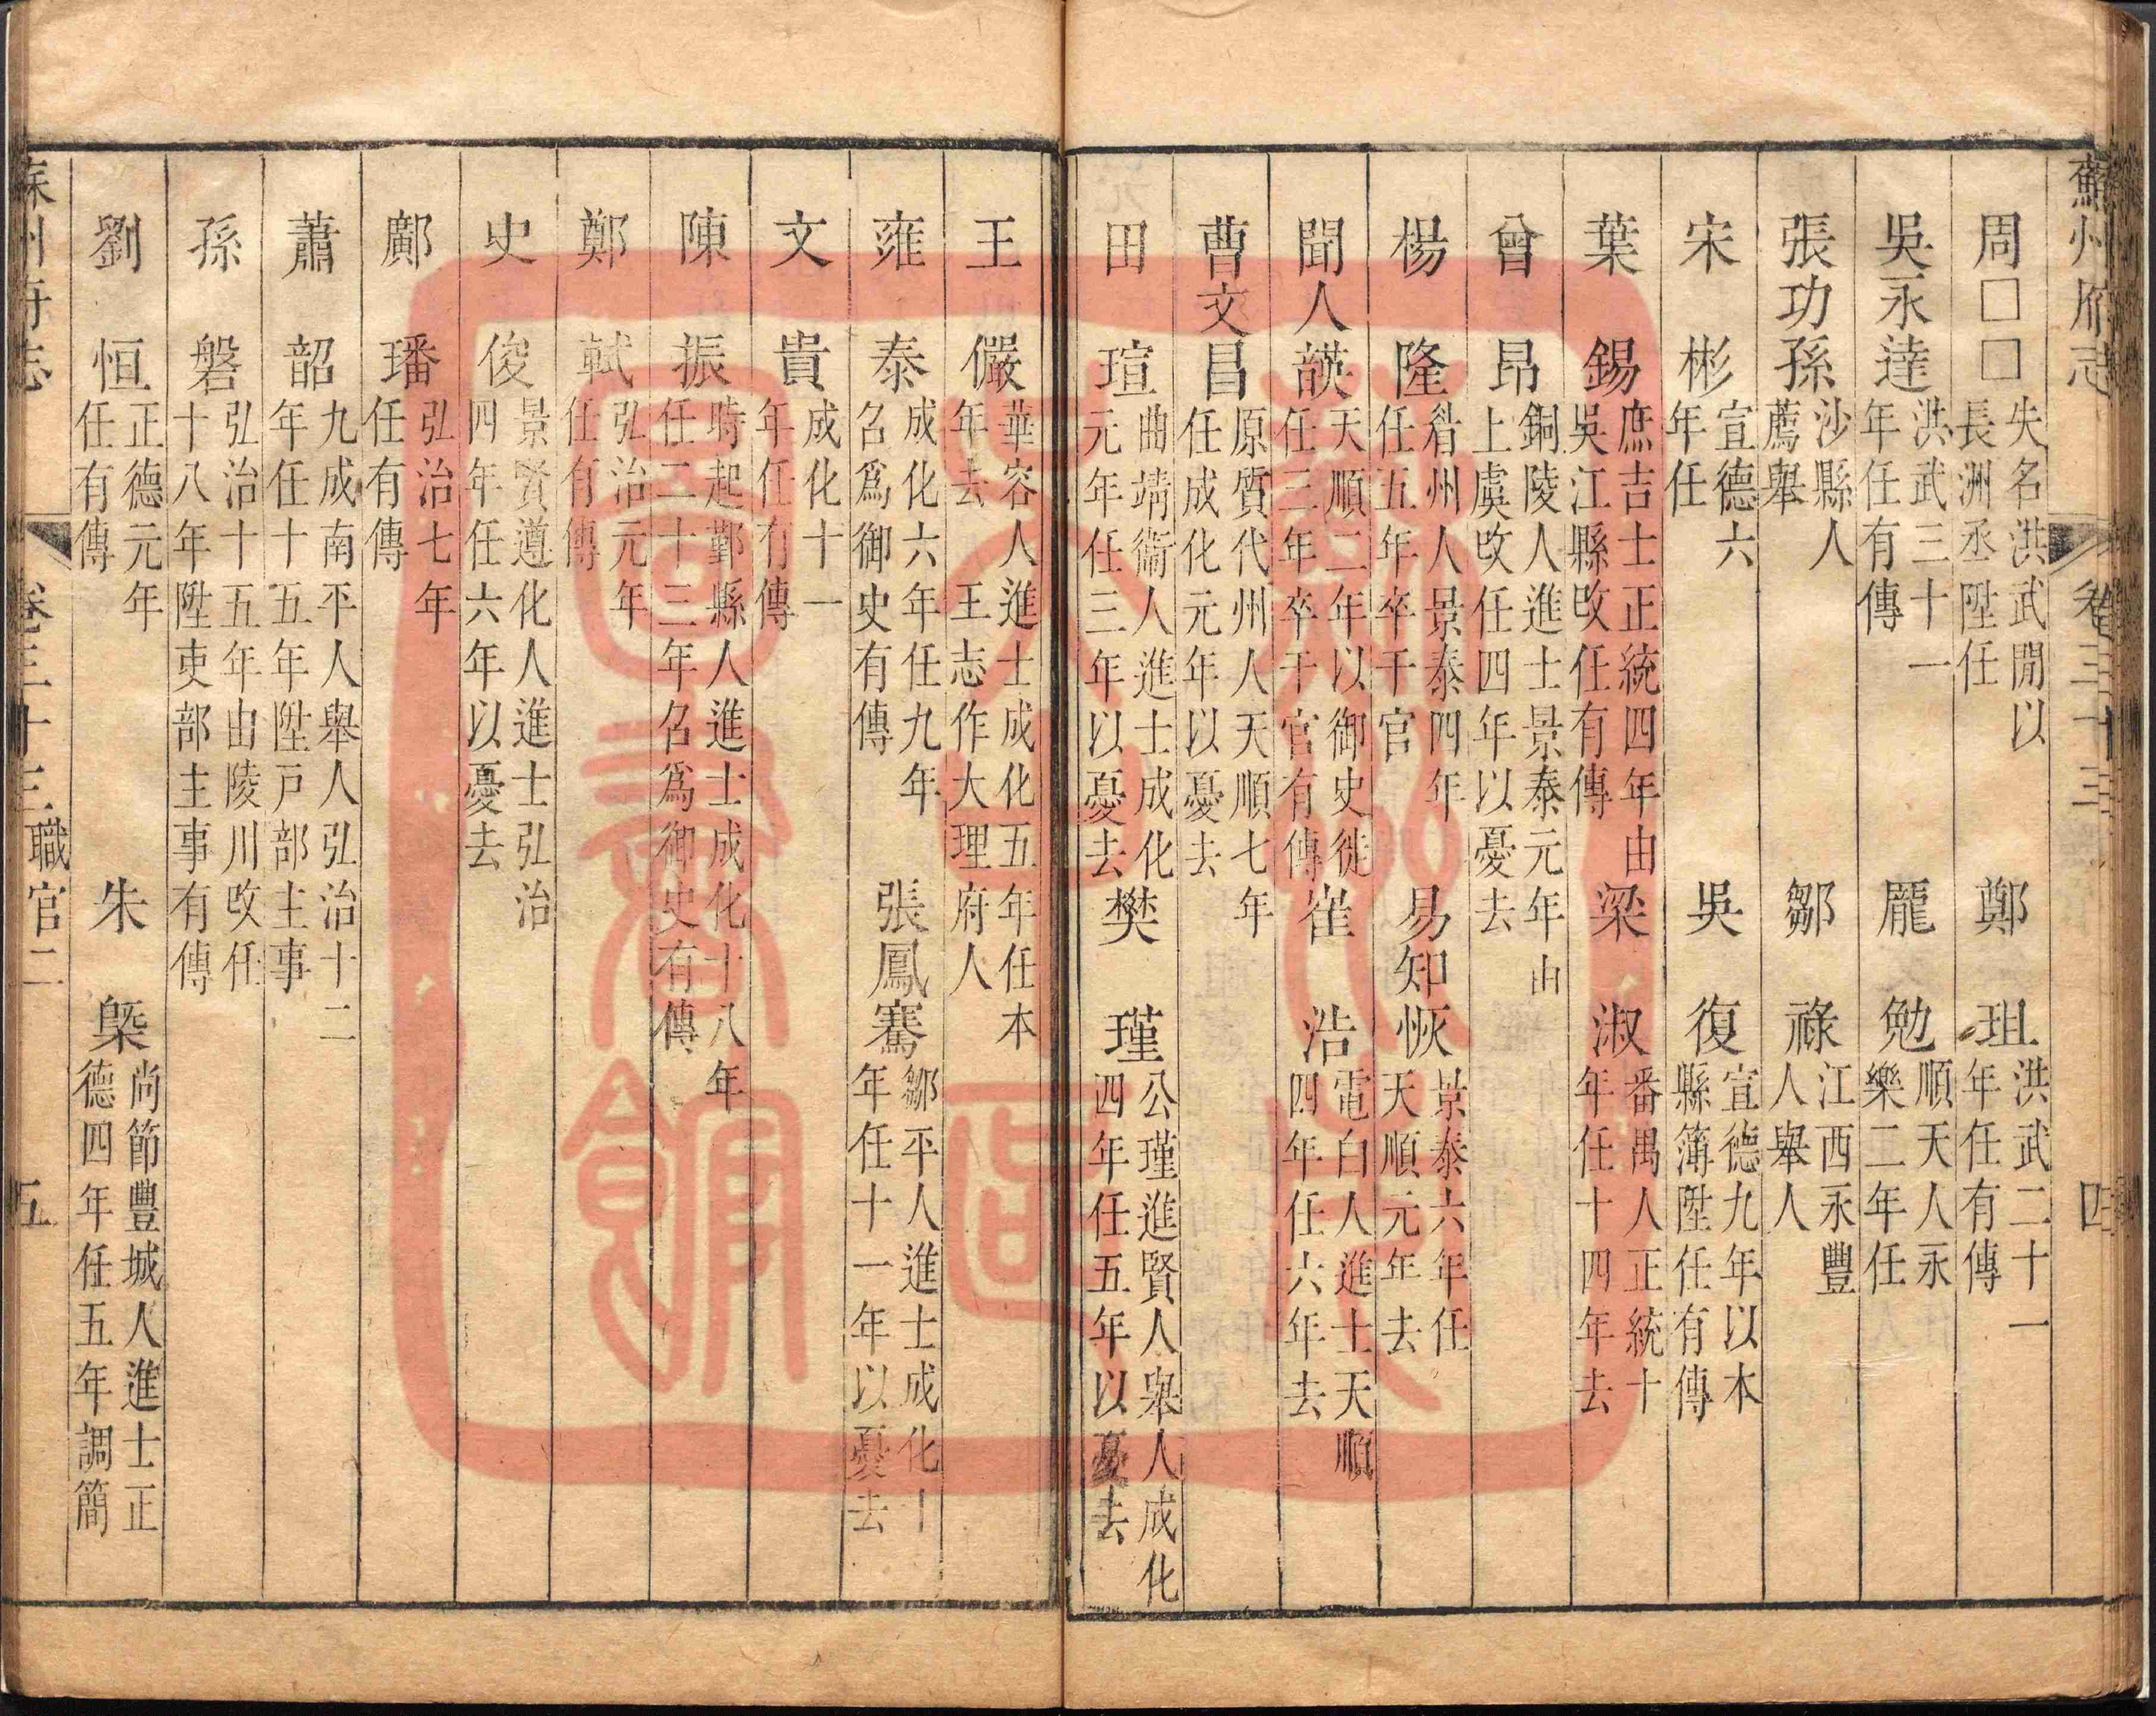 蘇州府志 卷三十三 四
周□□ 失名洪武閒以長洲丞陞任 鄭珇 洪武二十一年任有傳
吳永達 洪武三十一年任有傳 龎勉 順天人永樂二年任
張功孫 沙縣人薦舉 鄒祿 江西永豐人舉人
宋彬 宣德六年任 吳復 宣德九年以本縣簿陞任有傳
葉錫 庶吉士正統四年由吳江縣改任有傳 梁淑 番禺人正統十年任十四年去
曾昂 銅陵人進士景泰元年由上虞改任四年以憂去
楊隆 眷州人景泰四年任五年卒于官 易知恢 景泰六年任天順元年去
聞人韺 天順二年以御史徙任三年卒于官有傳 崔浩 電白人進士天順四年任六年去
曹文昌 原質代州人天順七年任成化元年以憂去
田瑄 曲靖衞人進士成化元年任三年以憂去 樊瑾 公瑾進賢人舉人成化四年任五年以憂去
王儼 華容人進士成化五年任本年去 王志作大理府人
雍泰 成化六年任九年召爲御史有傳 張鳳騫 鄒平人進士成化十年任十一年以憂去
文貴 成化十一年任有傳
陳振 時起鄞縣人進士成化十八年任二十三年召爲御史有傳
鄭軾 弘治元年任有傳
史俊 景賢遵化人進士弘治四年任六年以憂去
鄺璠 弘治七年任有傳
蕭韶 九成南平人舉人弘治十二年任十五年陞戸部主事
孫磐 弘治十五年由陵川改任十八年陞吏部主事有傳
劉恒 正德元年任有傳 朱槩 尚節豐城人進士正德四年任五年調簡
蘇州府志 卷三十三 職官二 五